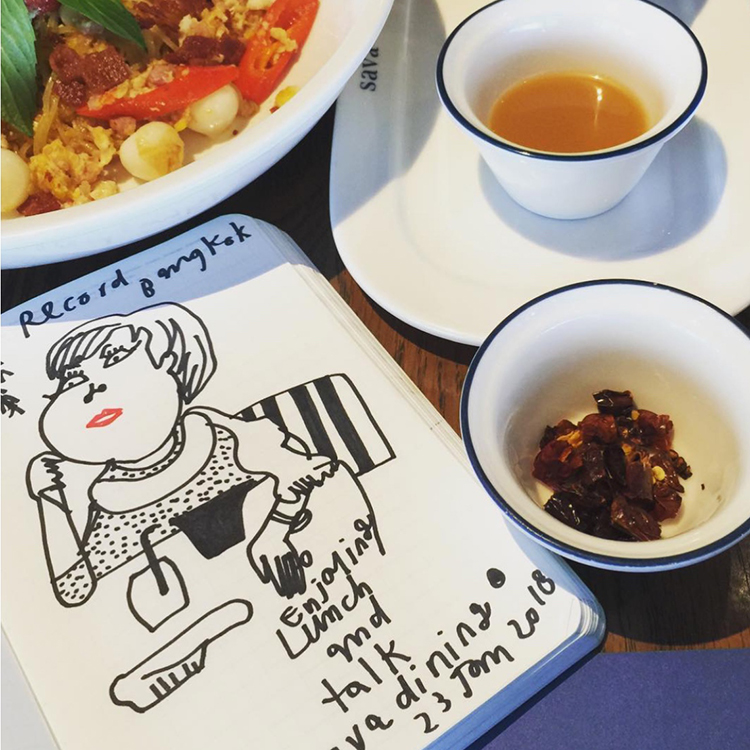 sava
Record Bangkok
Enjoying
Lunch
and
talk
ava dining.
23 Jan 2018